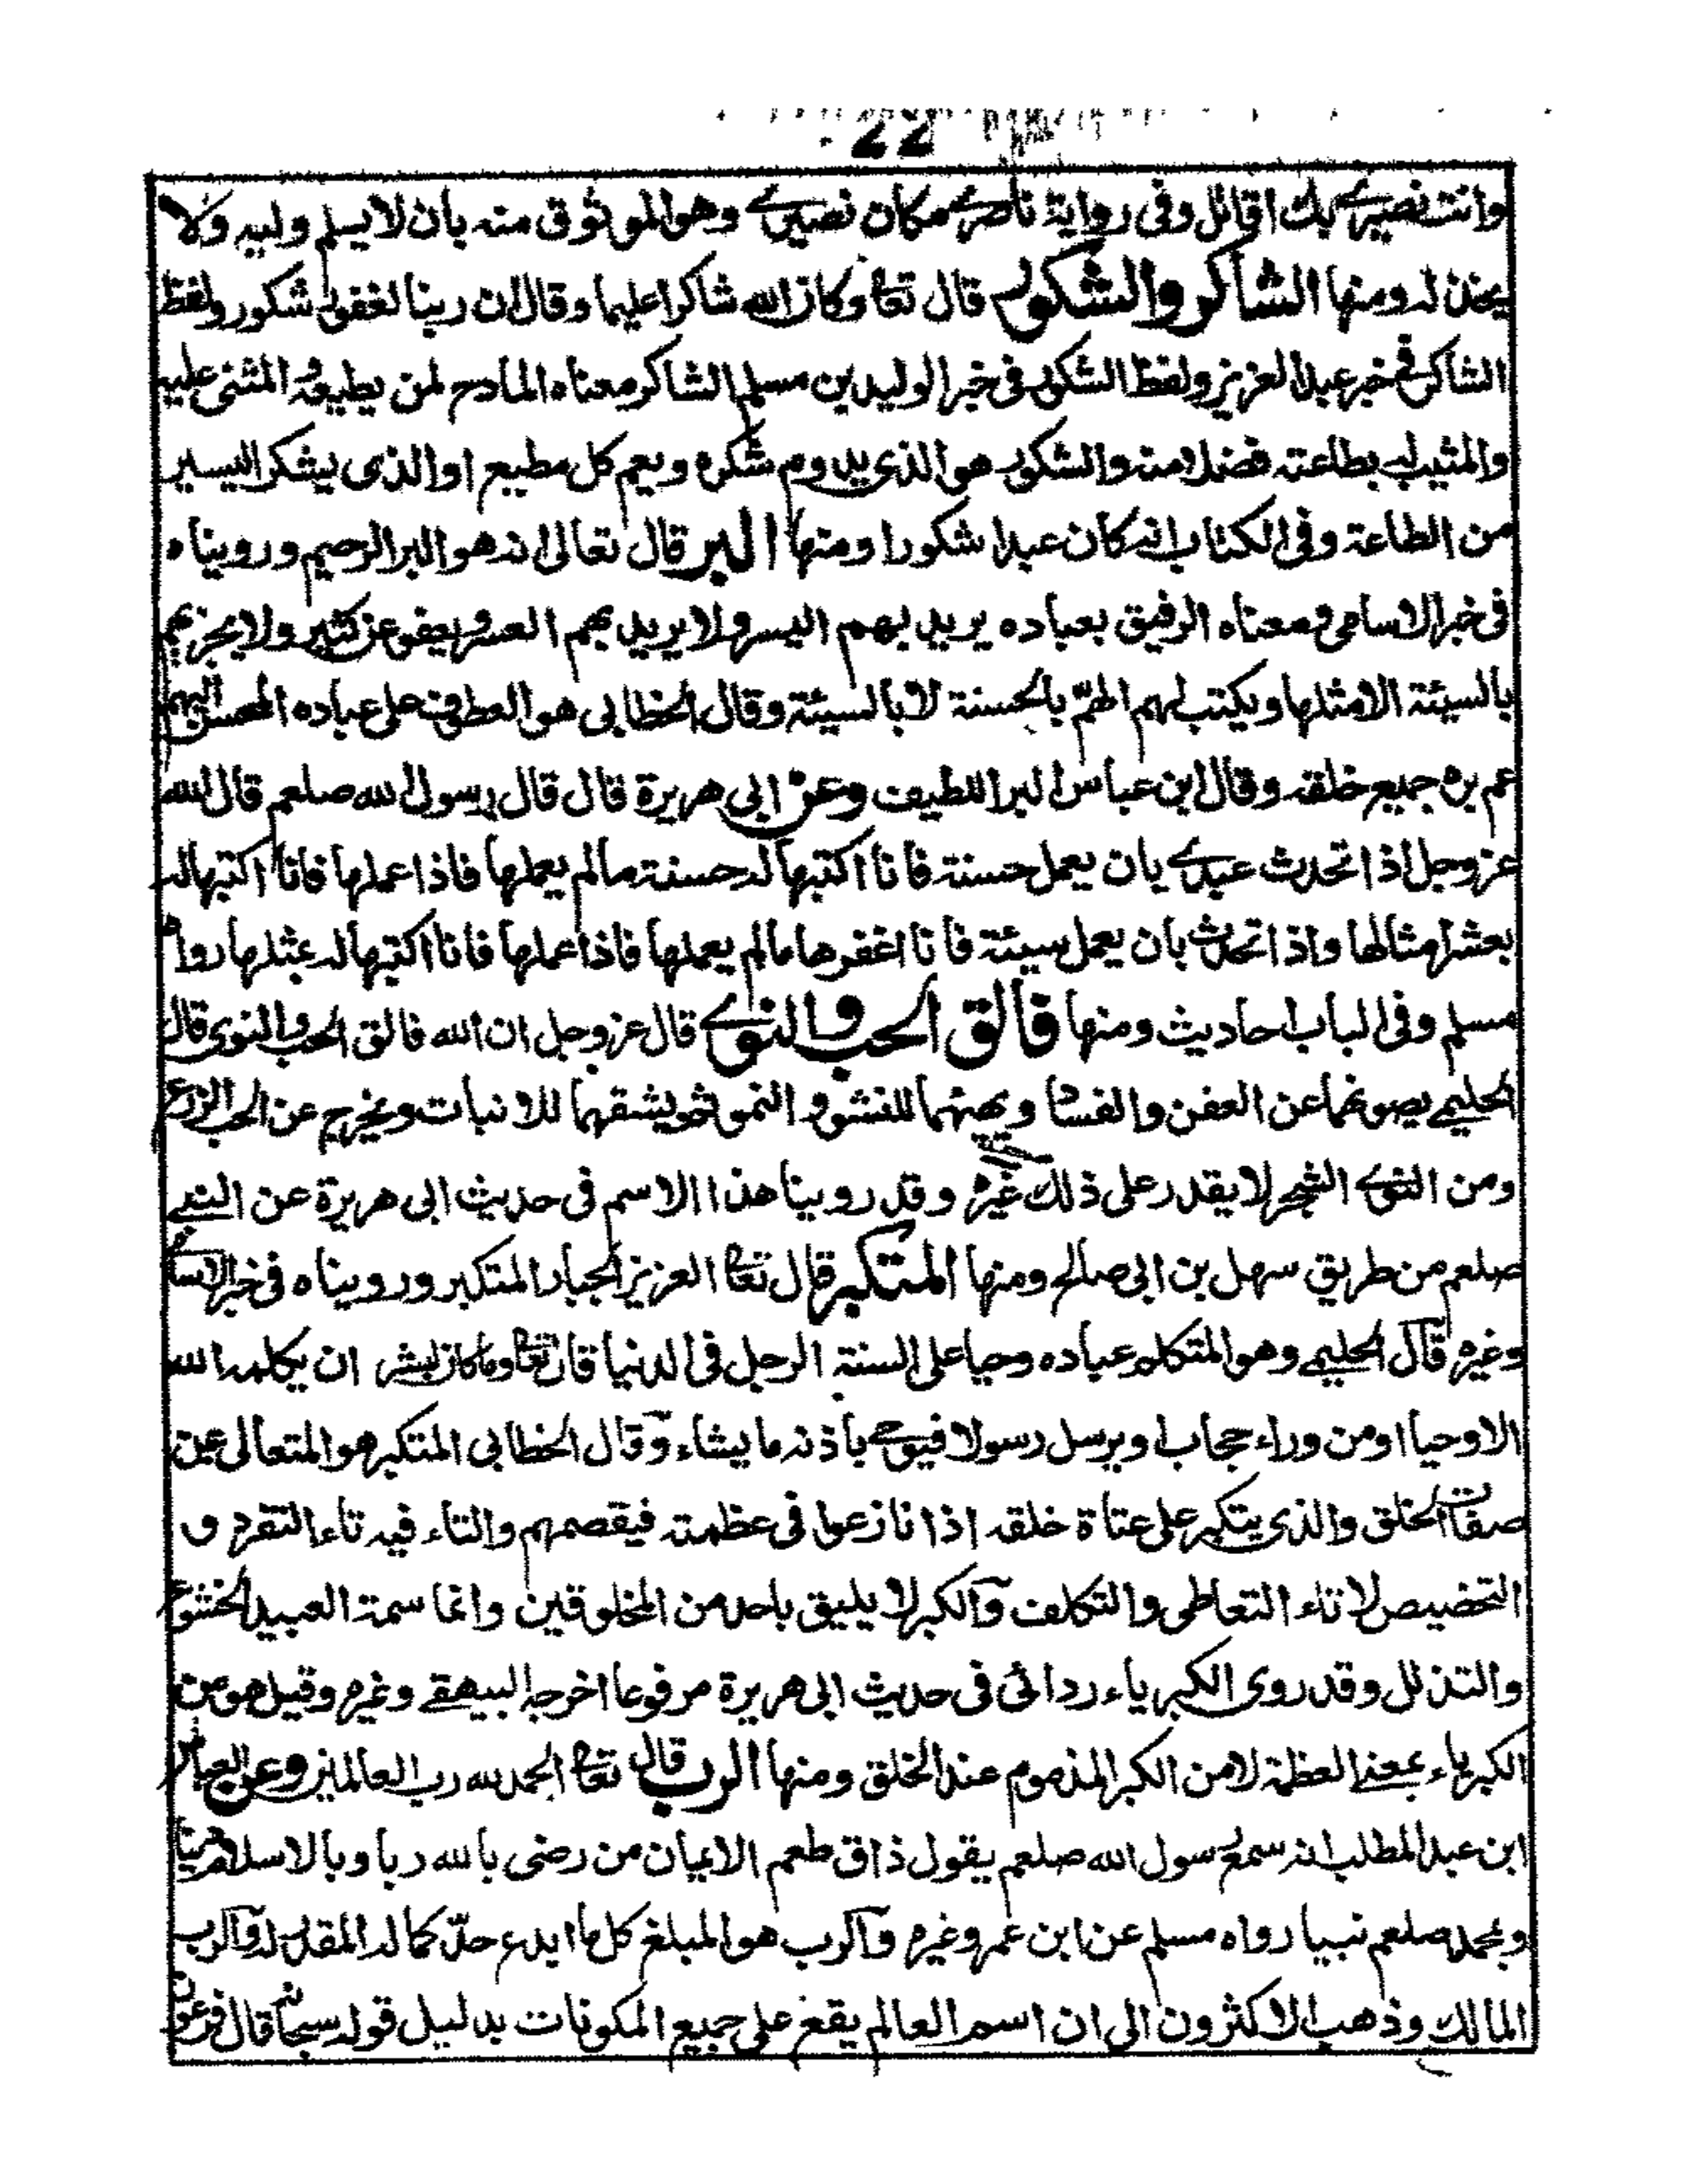 22
وانت نصيرے بك اقاتل وفى رواية ناصرے مكان نصيرے وهو الموثوق منه بان لا يسلم وليه ولا
يخذله ومنها الشاكر والشكور قال تعا وكان الله شاكرا عليما وقال ان ربنا لغفور شكور ولفظ
الشاكر فى خبر عبد العزيز ولفظ الشكور فى خبر الوليد بن مسلم الشاكر معناه المادح لمن يطيعه المثنى عليه
والمثيب له بطاعته فضلا منه والشكور هو الذى يدوم شكره ويعم كل مطيع او الذى يشكر اليسير
من الطاعة وفى الكتاب انه كان عبدا شكورا ومنها البر قال تعالى انه هو البر الرحيم ورويناه
فى خبر الاسامى ومعناه الرفيق بعباده يريد بهم اليسر ولا يريد بهم العسر ويعفو عن كثير ولا يجزيهم
بالسيئة الا مثلها ويكتب لهم الهمّ بالحسنة لا بالسيئة وقال الخطابى هو العطوف على عباده المحسن اليهم
عم بره جميع خلقه وقال ابن عباس البر اللطيف وعن ابى هريرة قال قال رسول الله صلعم قال الله
عز وجل اذا تحدث عبدے بان يعمل حسنة فانا اكتبها له حسنة مالم يعملها فاذا عملها فانا اكتبها له
بعشر امثالها واذا تحدث بان يعمل سيئة فانا اغفرها مالم يعملها فاذا عملها فانا اكتبها له بمثلها رواه
مسلم وفى الباب احاديث ومنها فالق الحب والنوے قال عز وجل ان الله فالق الحب والنوى قال
الحليمے يصونهما عن العفن والفساد ويهيئهما للنشو والنمو ثم يشقهما للانبات ويخرج عن الحب الزرع
ومن النوے الشجر لا يقدر على ذلك غيره وقد روينا هذا الاسم فى حديث ابى هريرة عن النبے
صلعم من طريق سهل بن ابى صالح ومنها المتكبر قال تعا العزيز الجبار المتكبر ورويناه فى خبر الاسامى
وغيره قال الحليمے وهو المتكلم عباده وحيا على السنة الرجل فى الدنيا قال تعا وما كان لبشر ان يكلمه الله
الا وحيا او من وراء حجاب او يرسل رسولا فيوحے باذنه ما يشاء وقال الخطابى المتكبر هو المتعالى عن
صفات الخلق والذى يتكبر على عتاة خلقه اذا نازعوا فى عظمته فيقصمهم والتاء فيه تاء التفرد و
التخصيص لا تاء التعاطى والتكلف والكبر لا يليق باحد من المخلوقين وانما سمة العبيد الخشوع
والتذلل وقد روى الكبرياء ردائى فى حديث ابى هريرة مرفوعا اخرجه البيهقے وغيره وقيل هو من
الكبرياء بمعنے العظمة لا من الكبر المذموم عند الخلق ومنها الرب قال تعا الحمد لله رب العالمين وعن العباس
ابن عبد المطلب انه سمع رسول الله صلعم يقول ذاق طعم الايمان من رضى بالله ربا وبالاسلام دينا
وبمحمد صلعم نبيا رواه مسلم عن ابن عمر وغيره والرب هو المبلغ كل ما ابدع حدّ كماله المقدر له والرب
المالك وذهب الاكثرون الى ان اسم العالم يقع على جميع المكونات بدليل قوله سبحانه قال فرعون